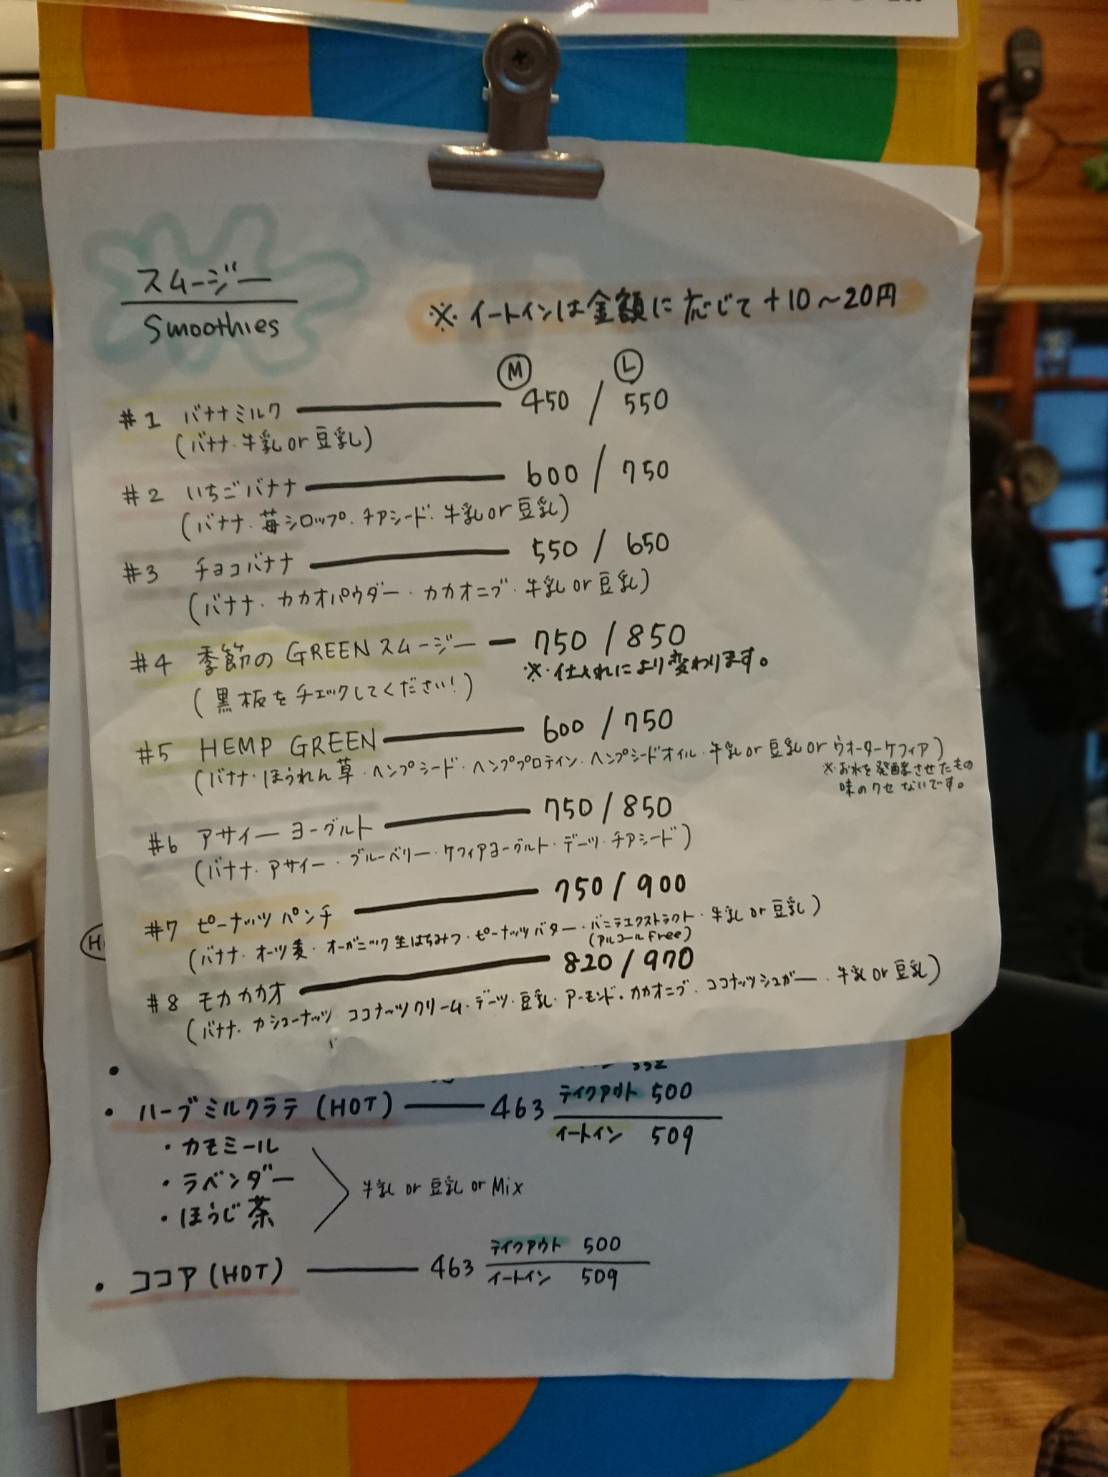 スムージー
Smoothies
※イートインは金額に応じて+10～20円
M L
#1 バナナミルク 450 / 550
(バナナ・牛乳or豆乳)
#2 いちごバナナ 600 / 750
(バナナ・苺シロップ・チアシード・牛乳or豆乳)
#3 チョコバナナ 550 / 650
(バナナ・カカオパウダー・カカオニブ・牛乳or豆乳)
#4 季節のGREENスムージー 750 / 850
※仕入れにより変わります。
(黒板をチェックしてください!)
#5 HEMP GREEN 600 / 750
(バナナ・ほうれん草・ヘンプシード・ヘンププロテイン・ヘンプシードオイル・牛乳or豆乳orウォーターケフィア)
※お水を発酵させたもの
味のクセないです。
#6 アサイーヨーグルト 750 / 850
(バナナ・アサイー・ブルーベリー・ケフィアヨーグルト・デーツ・チアシード)
#7 ピーナッツパンチ 750 / 900
(バナナ・オーツ麦・オーガニック生はちみつ・ピーナッツバター・バニラエクストラクト・牛乳or豆乳)
(アルコールFree)
#8 モカカカオ 820 / 970
(バナナ・カシューナッツ ココナッツクリーム・デーツ・豆乳・アーモンド・カカオニブ・ココナッツシュガー・牛乳or豆乳)
・ハーブミルクラテ(HOT) 463 テイクアウト 500
イートイン 509
・カモミール
・ラベンダー
・ほうじ茶
牛乳 or 豆乳 or Mix
・ココア(HOT) 463 テイクアウト 500
イートイン 509